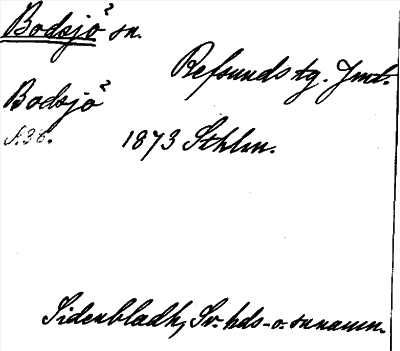 Bodsjö² sn.
Refsunds tg. Jmtl.
Bodsjö²
s. 36. 1873 Sthlm.
Sidenbladh, Sv. hds- o. snnamn.